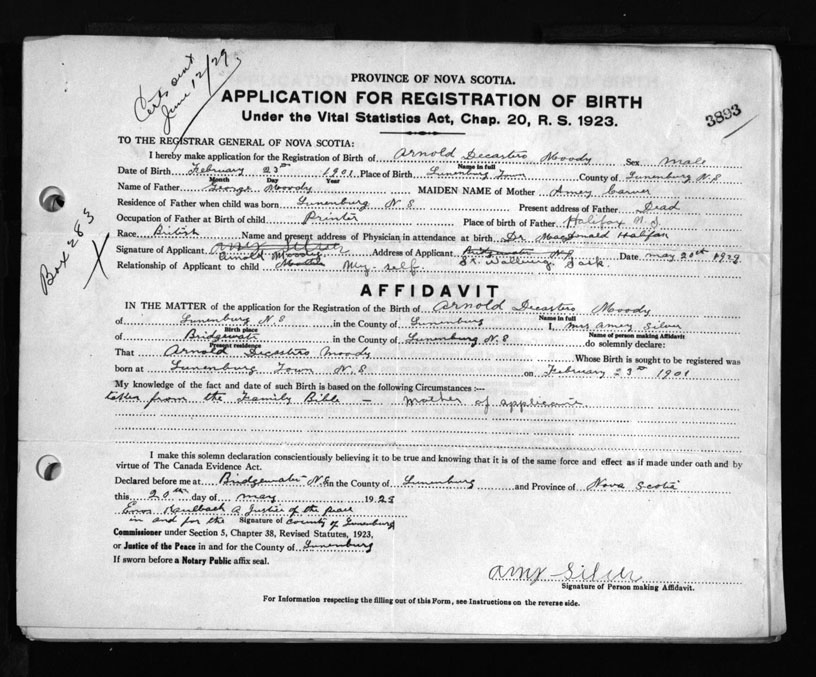 Cert sent
June 12/29
PROVINCE OF NOVA SCOTIA.
APPLICATION FOR REGISTRATION OF BIRTH
Under the Vital Statistics Act, Chap. 20, R. S. 1923.
3893
TO THE REGISTRAR GENERAL OF NOVA SCOTIA:
I hereby make application for the Registration of Birth of Arnold Decastro Moody Sex male
Name in full
Date of Birth February 23rd 1901 Place of Birth Lunenburg Town County of Lunenburg N.S
Month Day Year
Name of Father George Moody MAIDEN NAME of Mother Amey Carver
Residence of Father when child was born Lunenburg N.S Present address of Father Dead
Occupation of Father at Birth of child Printer Place of birth of Father Halifax N.S
Race British Name and present address of Physician in attendance at birth Dr. MacDonald Halifax
Signature of Applicant Amy Silver Address of Applicant Bridgewater N.S Date may 20th 1929
Arnold Moody St. Walburg Sask.
Relationship of Applicant to child Mother My self
Box 283
X
AFFIDAVIT
IN THE MATTER of the application for the Registration of the Birth of Arnold Decastro Moody
Name in full
of Lunenburg N.S in the County of Lunenburg I, mrs amey Silver
Birth place Name of person making Affidavit
of Bridgewater in the County of Lunenburg N.S do solemnly declare:
Present residence
That Arnold Decastro Moody Whose Birth is sought to be registered was
born at Lunenburg Town N.S on February 23rd 1901
My knowledge of the fact and date of such Birth is based on the following Circumstances :—
taken from the Family Bible — Mother of applicant
I make this solemn declaration conscientiously believing it to be true and knowing that it is of the same force and effect as if made under oath and by
virtue of The Canada Evidence Act.
Declared before me at Bridgewater N.S in the County of Lunenburg and Province of Nova Scotia
this 20th day of may 1928
Kaulback a Justice of the peace
in and for the County of Lunenburg
Signature of
Commissioner under Section 5, Chapter 38, Revised Statutes, 1923,
or Justice of the Peace in and for the County of Lunenburg
If sworn before a Notary Public affix seal.
Amy Silver
Signature of Person making Affidavit.
For Information respecting the filling out of this Form, see Instructions on the reverse side.